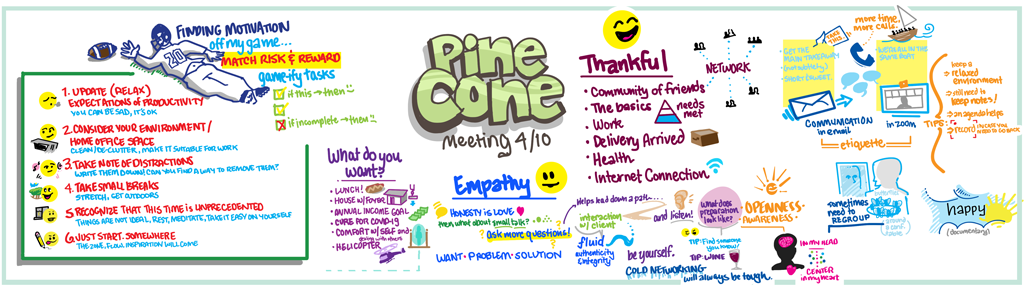 FINDING MOTIVATION
off my game...
MATCH RISK & REWARD
game-ify tasks
if this → then
if incomplete → then
1. UPDATE (RELAX)
EXPECTATIONS OF PRODUCTIVITY
YOU CAN BE SAD, IT'S OK
2. CONSIDER YOUR ENVIRONMENT/
HOME OFFICE SPACE
CLEAN/DE-CLUTTER, MAKE IT SUITABLE FOR WORK
3. TAKE NOTE OF DISTRACTIONS
WRITE THEM DOWN! CAN YOU FIND A WAY TO REMOVE THEM?
4. TAKE SMALL BREAKS
STRETCH, GET OUTDOORS
5. RECOGNIZE THAT THIS TIME IS UNPRECEDENTED
THINGS ARE NOT IDEAL, REST, MEDITATE, TAKE IT EASY ON YOURSELF
6. JUST START. SOMEWHERE
THE ZONE, FLOW, INSPIRATION WILL COME
Pine
Cone
Meeting 4/10
What do you
want?
• LUNCH!
• HOUSE W/FOYER
• ANNUAL INCOME GOAL
• CURE FOR COVID-19
• COMFORT W/ SELF and
being with others
• HELICOPTER
Empathy
HONESTY IS LOVE
what about small talk?
Ask more questions!
WANT · PROBLEM · SOLUTION
Thankful
• Community of friends
• The basics
needs
met
• Work
• Delivery Arrived
• Health
• Internet Connection
NETWORK
Helps lead down a path...
interaction
w/ client
and listen!
fluid
authenticity
& integrity
be yourself.
what does
preparation
look like?
TIP: Find someone
you know!
TIP: WINE
COLD NETWORKING
will always be tough.
OPENNESS·
AWARENESS·
IN MY HEAD
CENTER
in my heart
TAKE THIS
more time,
more calls
GET THE
MAIN TAKEAWAY
SHORT & SWEET.
WE'RE ALL IN THE
SAME BOAT
COMMUNICATION
in email
in zoom
etiquette
TIPS:
keep a
relaxed
environment
still need to
keep notes!
an agenda helps
RECORD
sometimes
need to
REGROUP
happy
(documentary)